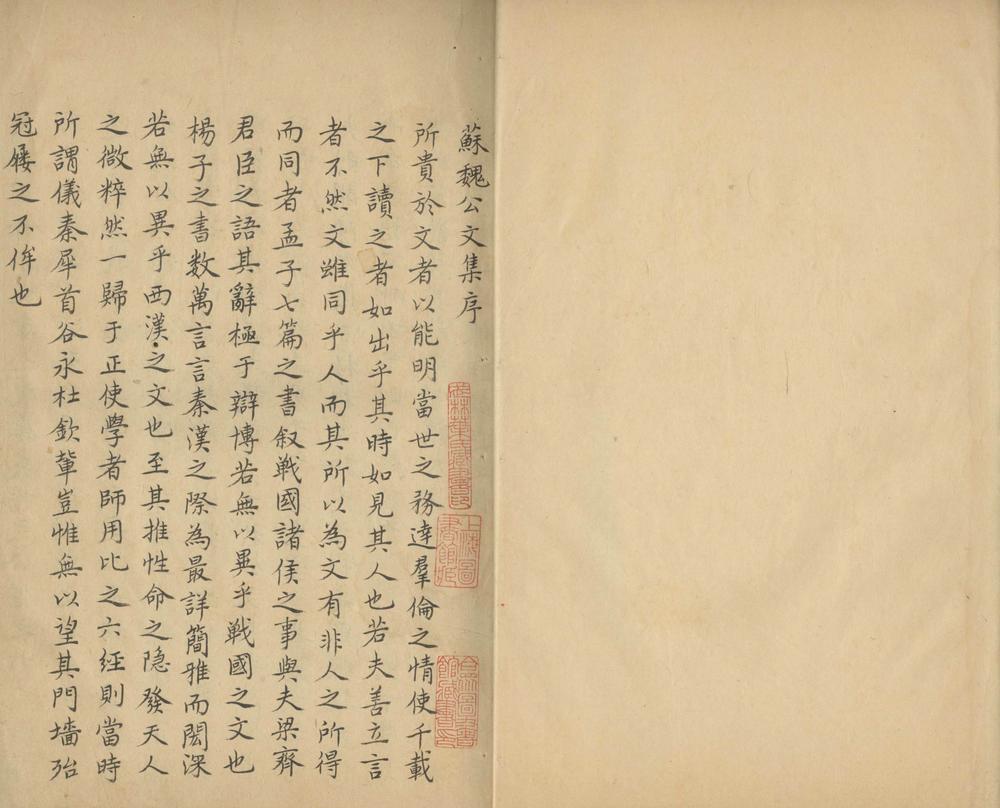 蘇魏公文集序
所貴於文者以能明當世之務達羣倫之情使千載
之下讀之者如出乎其時如見其人也若夫善立言
者不然文雖同乎人而其所以為文有非人之所得
而同者孟子七篇之書叙戦國諸侯之事與夫梁齊
君臣之語其辭極于辯博若無以異乎戦國之文也
楊子之書数萬言言秦漢之際為最詳簡雅而閎深
若無以異乎西漢之文也至其推性命之隐發天人
之微粹然一歸于正使學者師用比之六經則當時
所謂儀秦犀首谷永杜欽輩豈惟無以望其門墻殆
冠屨之不侔也
上海圖書館